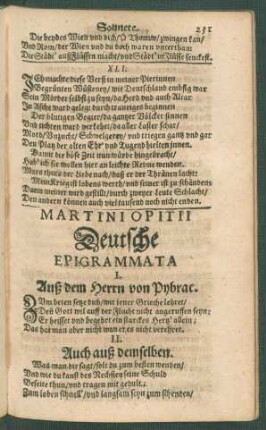 Sonnete. 231
Die beydes Wien und dich/O Thonaw/zwingen kan/
Und Rom/der Wien und du doch waren unterthan
Die Städt' an Flüssen macht/und Städt' in Flüsse senckest.
XLI.
Ich machte diese Verß in meiner Pierinnen
Begrünten Wüsteney/wie Deutschland embsig war
Sein Mörder selbst zu seyn/da Herd und auch Altar
In Asche ward gelegt durch trauriges beginnen
Der blutigen Begier/da gantzer Völcker sinnen
Und tichten ward verkehrt/da aller Laster schar/
Mord/Unzucht/Schwelgerey/und triegen gantz und gar
Den Platz der alten Ehr' und Tugend hielten innen.
Damit die böse Zeit nun würde hingebracht/
Hab' ich sie wollen hier an leichte Reime wenden.
Mars thut's der Liebe nach/daß er der Thränen lacht:
Mein Krieg ist lobens werth/und seiner ist zu schänden:
Dann meiner wird gestillt/durch zweyer Leute Schlacht/
Den andern können auch viel tausend noch nicht enden.
MARTINI OPITII
Deutsche
EPIGRAMMATA
I.
Auß dem Herrn von Pybrac.
Umb beten setze dich/wie jener Grieche lehret/
Denn Gott wil auff der Flucht nicht angeruffen seyn:
Er heisset und begehrt ein starckes Hertz' allein;
Das hat man aber nicht wann er es nicht verehret.
II.
Auch auß demselben.
Was man dir sagt/solt du zum besten wenden/
Und wie du kanst des Nechsten seine Schuld
Beseite thun/und tragen mit gedult;
Zum loben schnell'/und langsam seyn zum schenden/